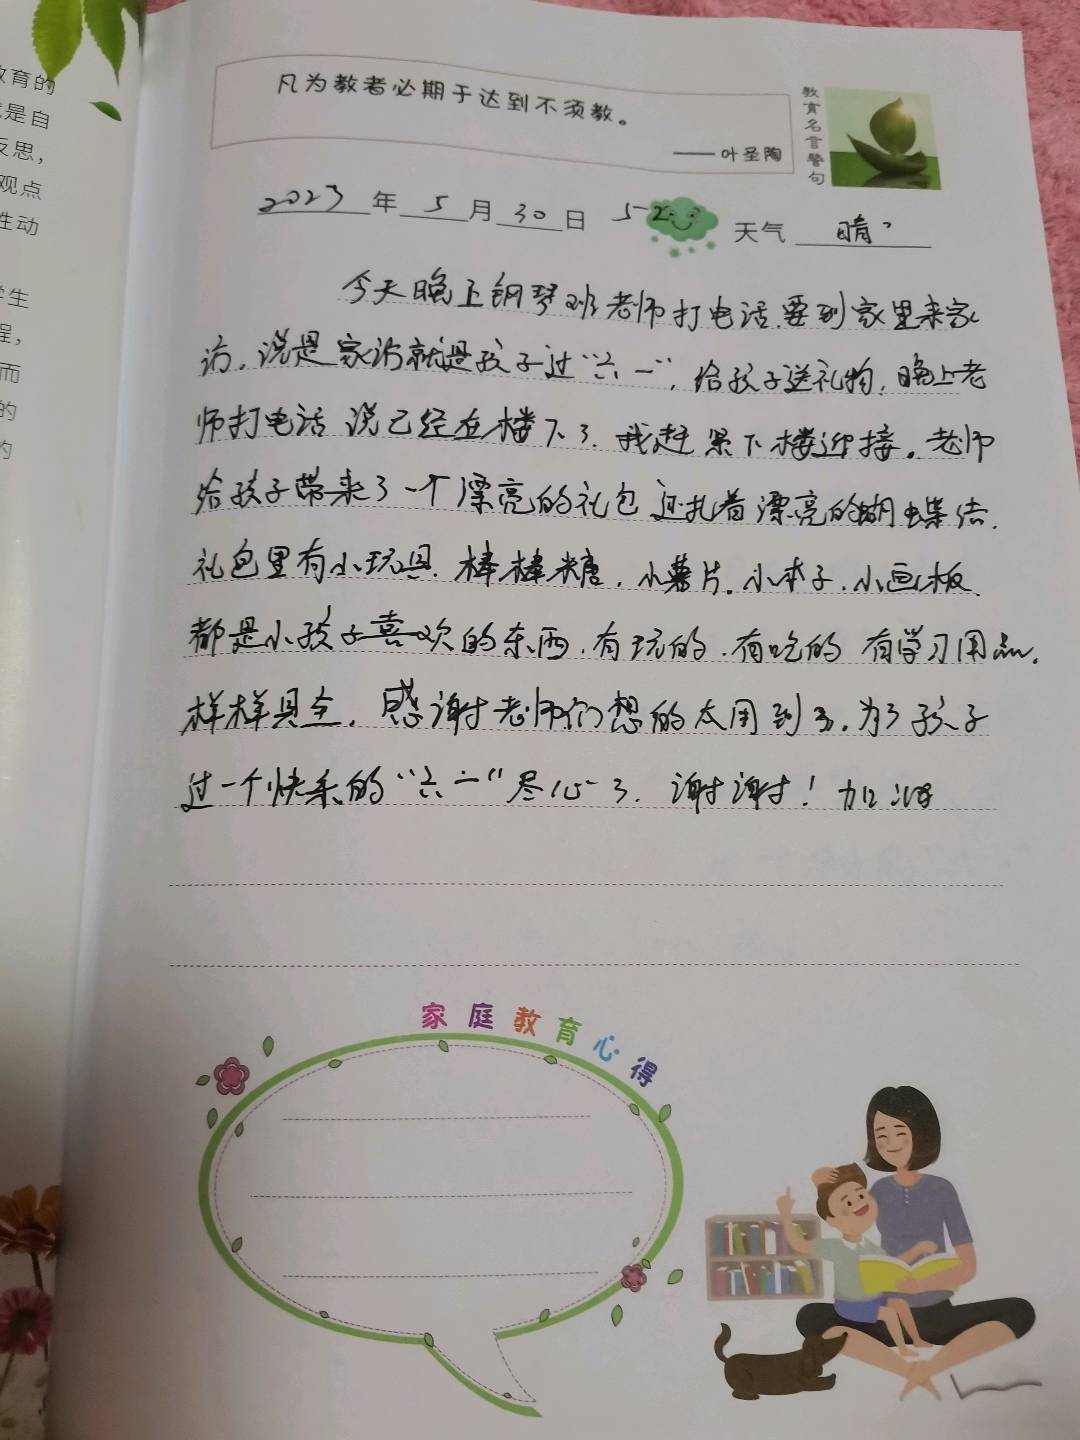 教育的
是自
反思，
观点
性动
学生
程，
而
的
的
凡为教者必期于达到不须教。
——叶圣陶
教育名言警句
2023年5月30日 52 天气 晴
今天晚上钢琴班老师打电话.要到家里来家
访.说是家访就是孩子过“六一”.给孩子送礼物.晚上老
师打电话说已经在楼下了.我赶紧下楼迎接。老师
给孩子带来了一个漂亮的礼包还扎着漂亮的蝴蝶结.
礼包里有小玩具.棒棒糖.小薯片.小本子.小画板.
都是小孩子喜欢的东西.有玩的.有吃的有学习用品.
样样具全.感谢老师们想的太周到了.为了孩子
过一个快乐的“六一”尽心了.谢谢!加油
家庭教育心得